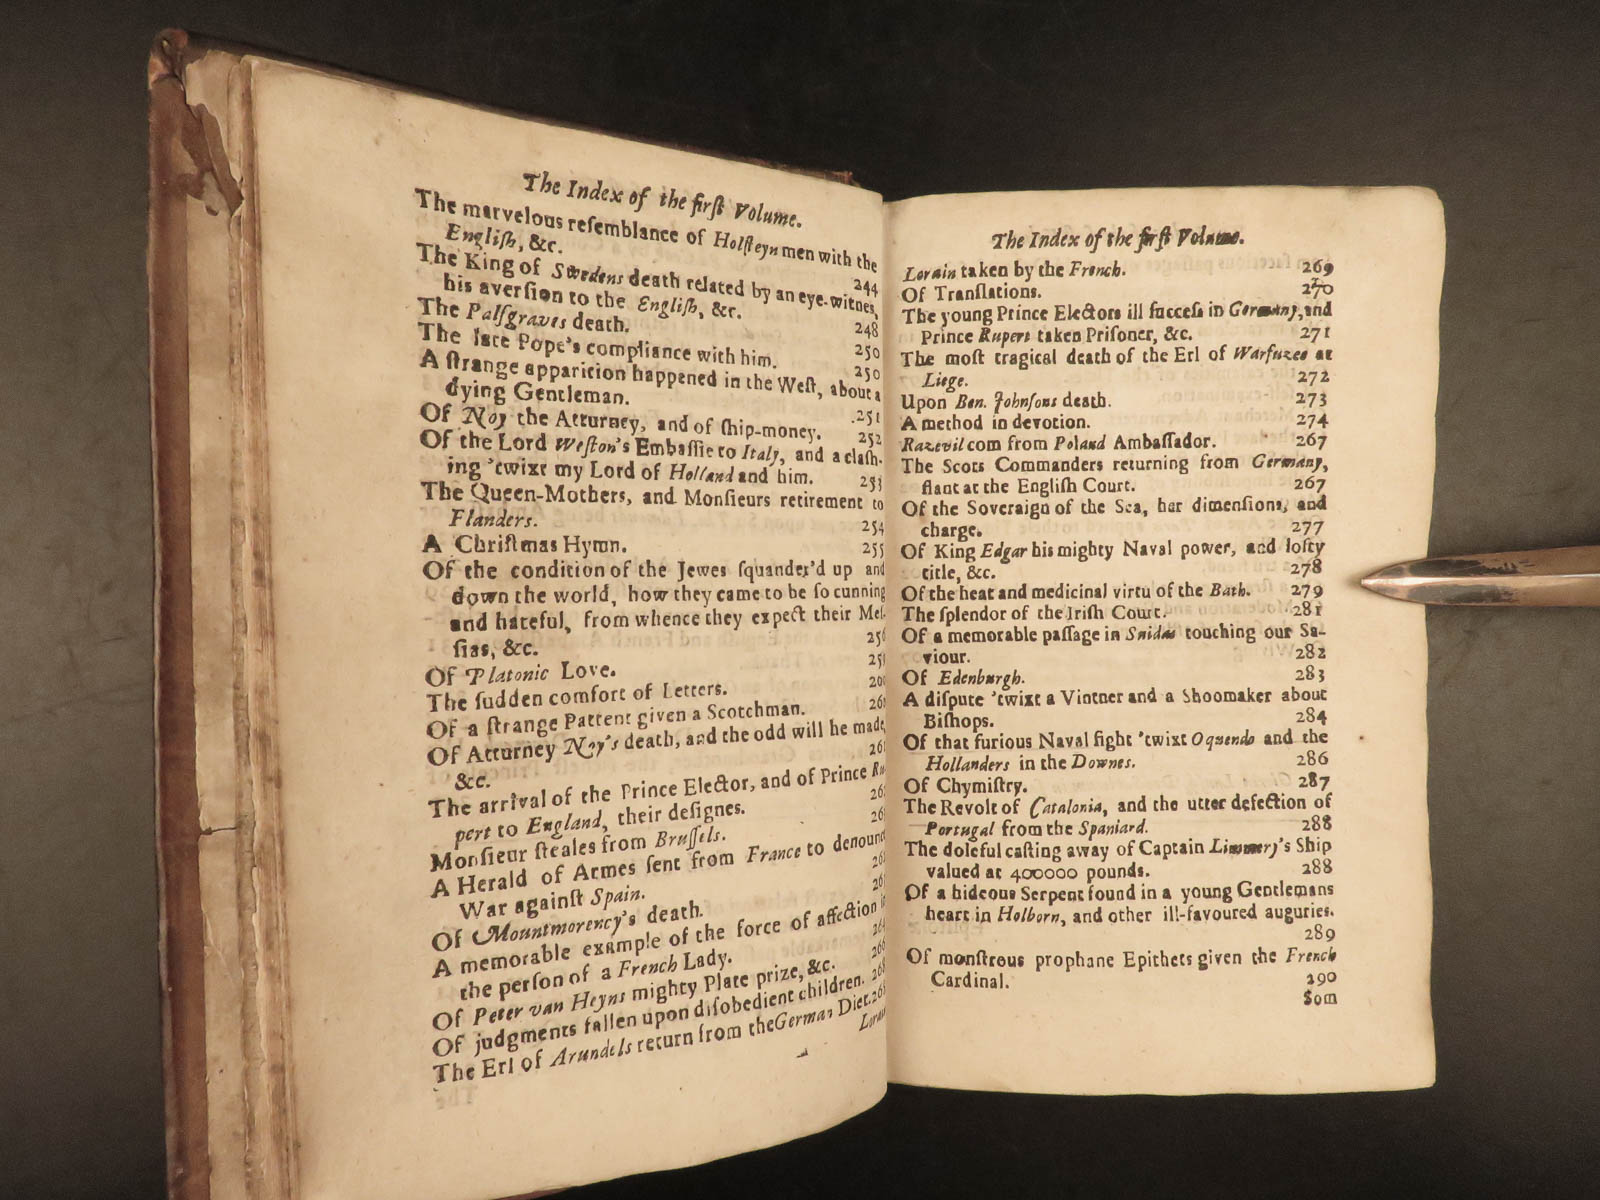 The Index of the firſt Volume.
The marvelous reſemblance of Holſteyn men with the
Engliſh, &c. 244
The King of Swedens death related by an eye-witnes,
his averſion to the Engliſh, &c. 248
The Palſgraves death. 250
The late Pope's compliance with him. 250
A ſtrange apparition happened in the Weſt, about a
dying Gentleman. 251
Of Noy the Atturney, and of ſhip-money. 252
Of the Lord Weſton's Embaſſie to Italy, and a claſh-
ing 'twixt my Lord of Holland and him. 253
The Queen-Mothers, and Monſieurs retirement to
Flanders. 254
A Chriſtmas Hymn. 255
Of the condition of the Jewes ſquander'd up and
down the world, how they came to be ſo cunning
and hateful, from whence they expect their Meſ-
ſias, &c. 256
Of Platonic Love.
The ſudden comfort of Letters.
Of a ſtrange Pattent given a Scotchman.
Of Atturney Noy's death, and the odd will he made,
&c.
The arrival of the Prince Elector, and of Prince Ru-
pert to England, their deſignes.
Monſieur ſteales from Bruſſels.
A Herald of Armes ſent from France to denounce
War againſt Spain.
Of Mountmorency's death.
A memorable example of the force of affection in
the perſon of a French Lady.
Of Peter van Heyns mighty Plate prize, &c.
Of judgments fallen upon diſobedient children.
The Erl of Arundels return from the German Diet.
Lorain
The Index of the firſt Volume.
Lorain taken by the French. 269
Of Tranſlations. 270
The young Prince Electors ill ſucceſs in Germany, and
Prince Rupert taken Priſoner, &c. 271
The moſt tragical death of the Erl of Warfuzee at
Liege. 272
Upon Ben. Johnſons death. 273
A method in devotion. 274
Razevil com from Poland Ambaſſador. 267
The Scots Commanders returning from Germany,
flant at the Engliſh Court. 267
Of the Soveraign of the Sea, har dimenſions, and
charge. 277
Of King Edgar his mighty Naval power, and lofty
title, &c. 278
Of the heat and medicinal virtu of the Bath. 279
The ſplendor of the Iriſh Court. 281
Of a memorable paſſage in Suidas touching our Sa-
viour. 282
Of Edenburgh. 283
A diſpute 'twixt a Vintner and a Shoomaker about
Biſhops. 284
Of that furious Naval fight 'twixt Oquendo and the
Hollanders in the Downes. 286
Of Chymiſtry. 287
The Revolt of Catalonia, and the utter defection of
Portugal from the Spaniard. 288
The doleful caſting away of Captain Limmery's Ship
valued at 400000 pounds. 288
Of a hideous Serpent found in a young Gentlemans
heart in Holborn, and other ill-favoured auguries.
289
Of monſtrous prophane Epithets given the French
Cardinal. 290
Som